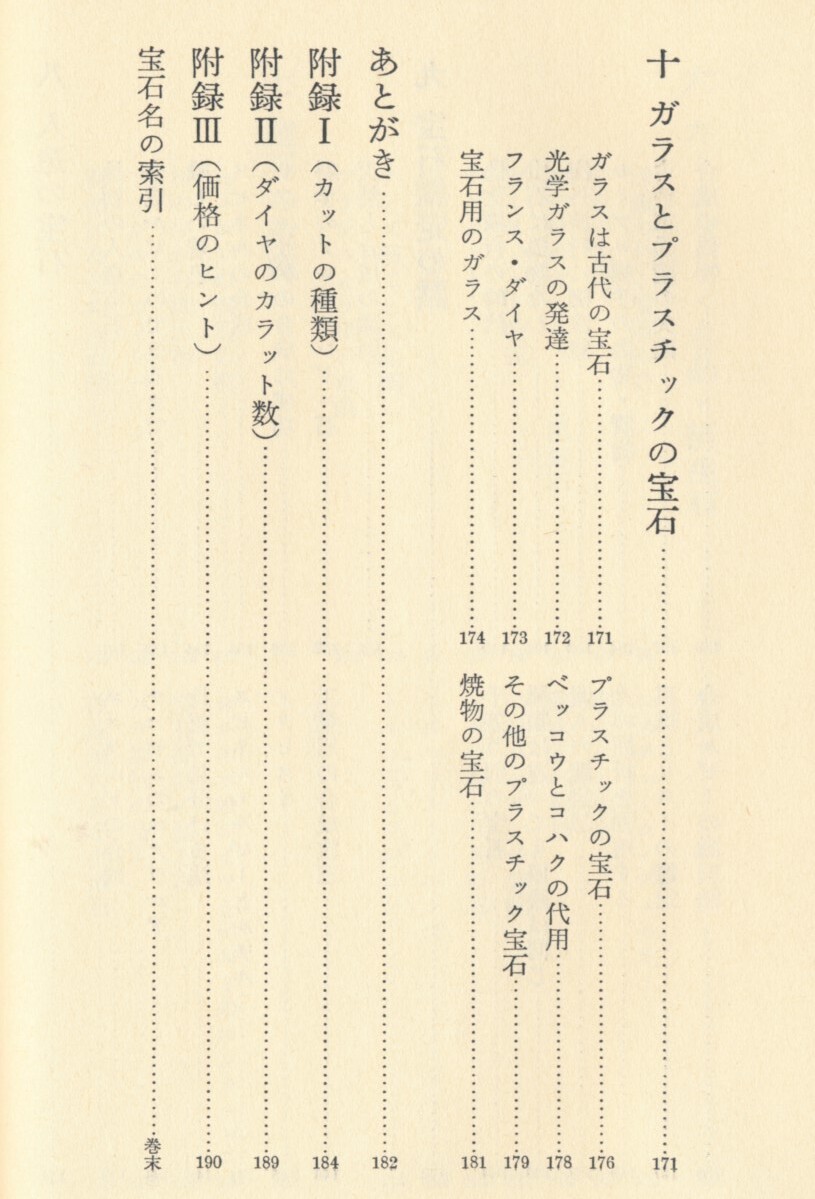 十 ガラスとプラスチックの宝石……171
ガラスは古代の宝石……171
光学ガラスの発達……172
フランス・ダイヤ……173
宝石用のガラス……174
プラスチックの宝石……176
ベッコウとコハクの代用……178
その他のプラスチック宝石……179
焼物の宝石……181
あとがき……182
附録Ⅰ(カットの種類)……184
附録Ⅱ(ダイヤのカラット数)……189
附録Ⅲ(価格のヒント)……190
宝石名の索引……巻末